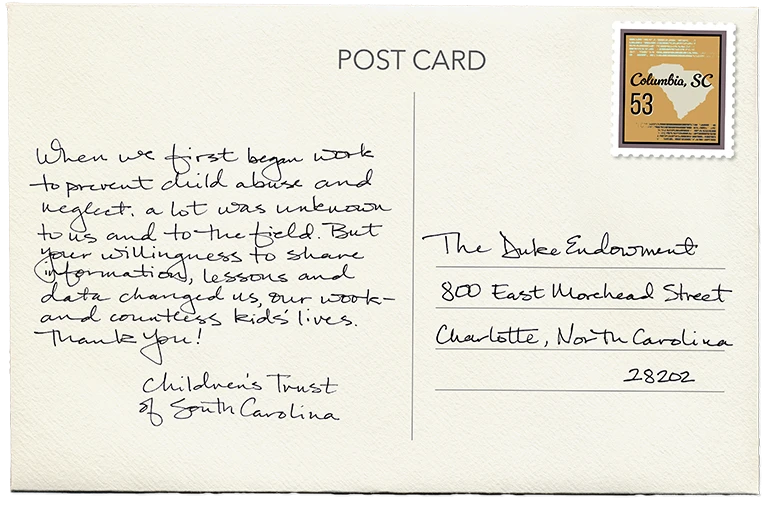 POST CARD
Columbia, SC
53
When we first began work
to prevent child abuse and
neglect, a lot was unknown
to us and to the field. But
your willingness to share
information, lessons and
data changed us, our work-
and countless kids' lives.
Thank you!
Children's Trust
of South Carolina
The Duke Endowment
800 East Morehead Street
Charlotte, North Carolina
28202